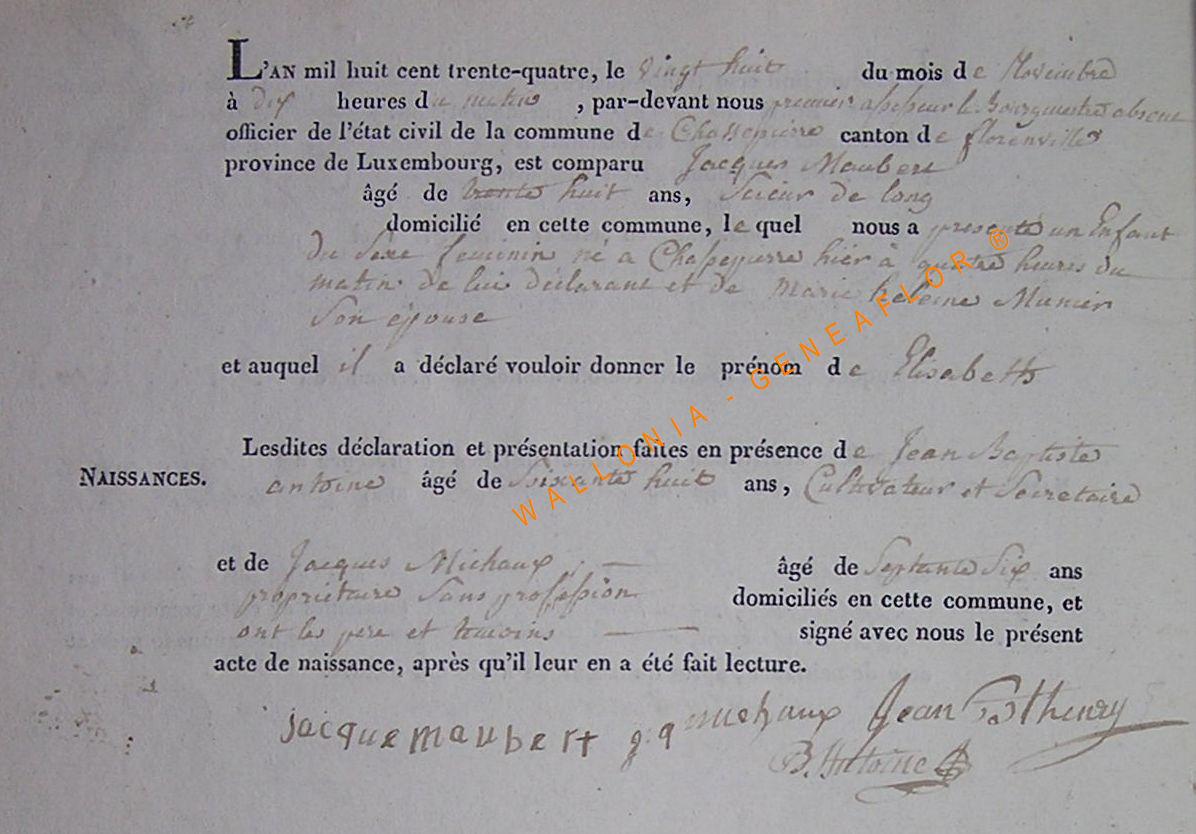 L'AN mil huit cent trente-quatre, le vingt huit du mois de Novembre
à dix heures du matin, par-devant nous premier assesseur le Bourgmestre absent
officier de l'état civil de la commune de Chassepierre canton de florenville
province de Luxembourg, est comparu Jacques Maubert
âgé de trente huit ans, Scieur de long
domicilié en cette commune, lequel nous a presenté un Enfant
du Sexe feminin né a Chassepierre hier à quatre heures du
matin de lui déclarant et de marie heleine Munier
Son épouse
et auquel il a déclaré vouloir donner le prénom de Elisabeth
Lesdites déclaration et présentation faites en présence de Jean Baptiste
NAISSANCES.
antoine âgé de Soixante huit ans, Cultivateur et Secretaire
et de Jacques Michaux âgé de Septante Six ans
propriétaire Sans profession domiciliés en cette commune, et
ont les pere et temoins signé avec nous le présent
acte de naissance, après qu'il leur en a été fait lecture.
jacque maubert michaux Jean
B. Antoine
WALLONIA - GENEAFLOR ®